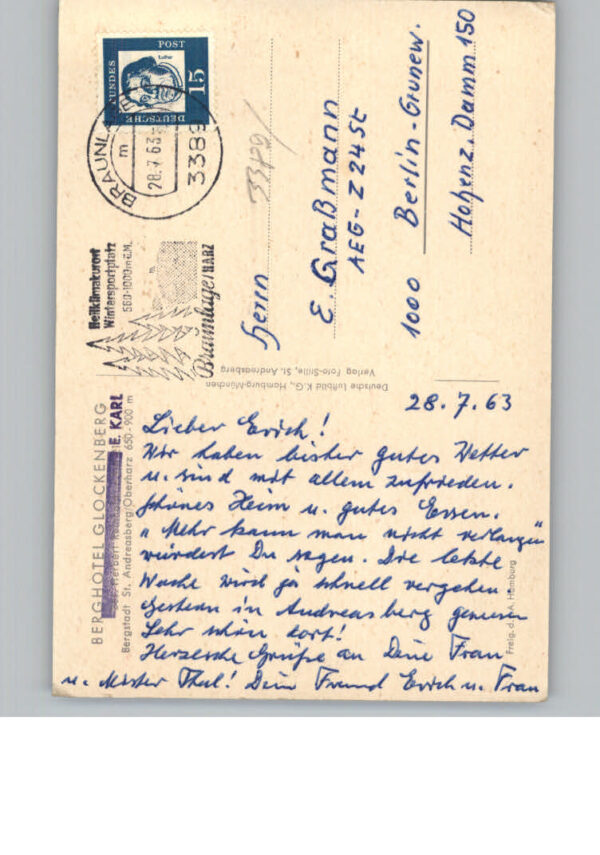 DEUTSCHE
BUNDESPOST
Luther
15
BRAUNLAGE
m
28.7.63
3389
Heilklimakurort
Wintersportplatz
560-1000 m ü.M.
Braunlage/HARZ
3389/
Herrn
E. Graßmann
AEG-Z 24 St
1000 Berlin-Grunew.
Hohenz. Damm 150
Deutsche Luftbild K.G., Hamburg-München
Verlag Foto-Stille, St. Andreasberg
BERGHOTEL GLOCKENBERG
E. KARL
Bergstadt St. Andreasberg/Oberharz 650-900 m
Freig. d. LA. Hamburg
28.7.63
Lieber Erich!
Wir haben bisher gutes Wetter
u. sind mit allem zufrieden.
Schönes Heim u. gutes Essen.
„Mehr kann man nicht verlangen"
würdest Du sagen. Die letzte
Woche wird ja schnell vergehen.
Gestern in Andreasberg gewesen
Sehr schön dort!
Herzliche Grüße an Deine Frau
u. Mister Thul! Dein Freund Erich u. Frau